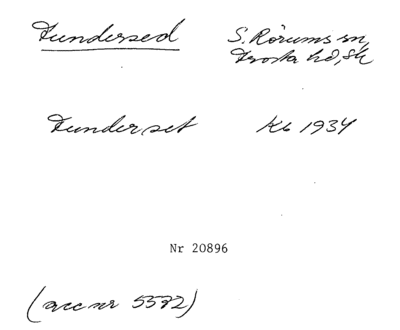 Fundersed
S. Rörums sn,
Frosta hd, Sk
Funderset
Kb 1934
Nr 20896
(acc nr 5572)